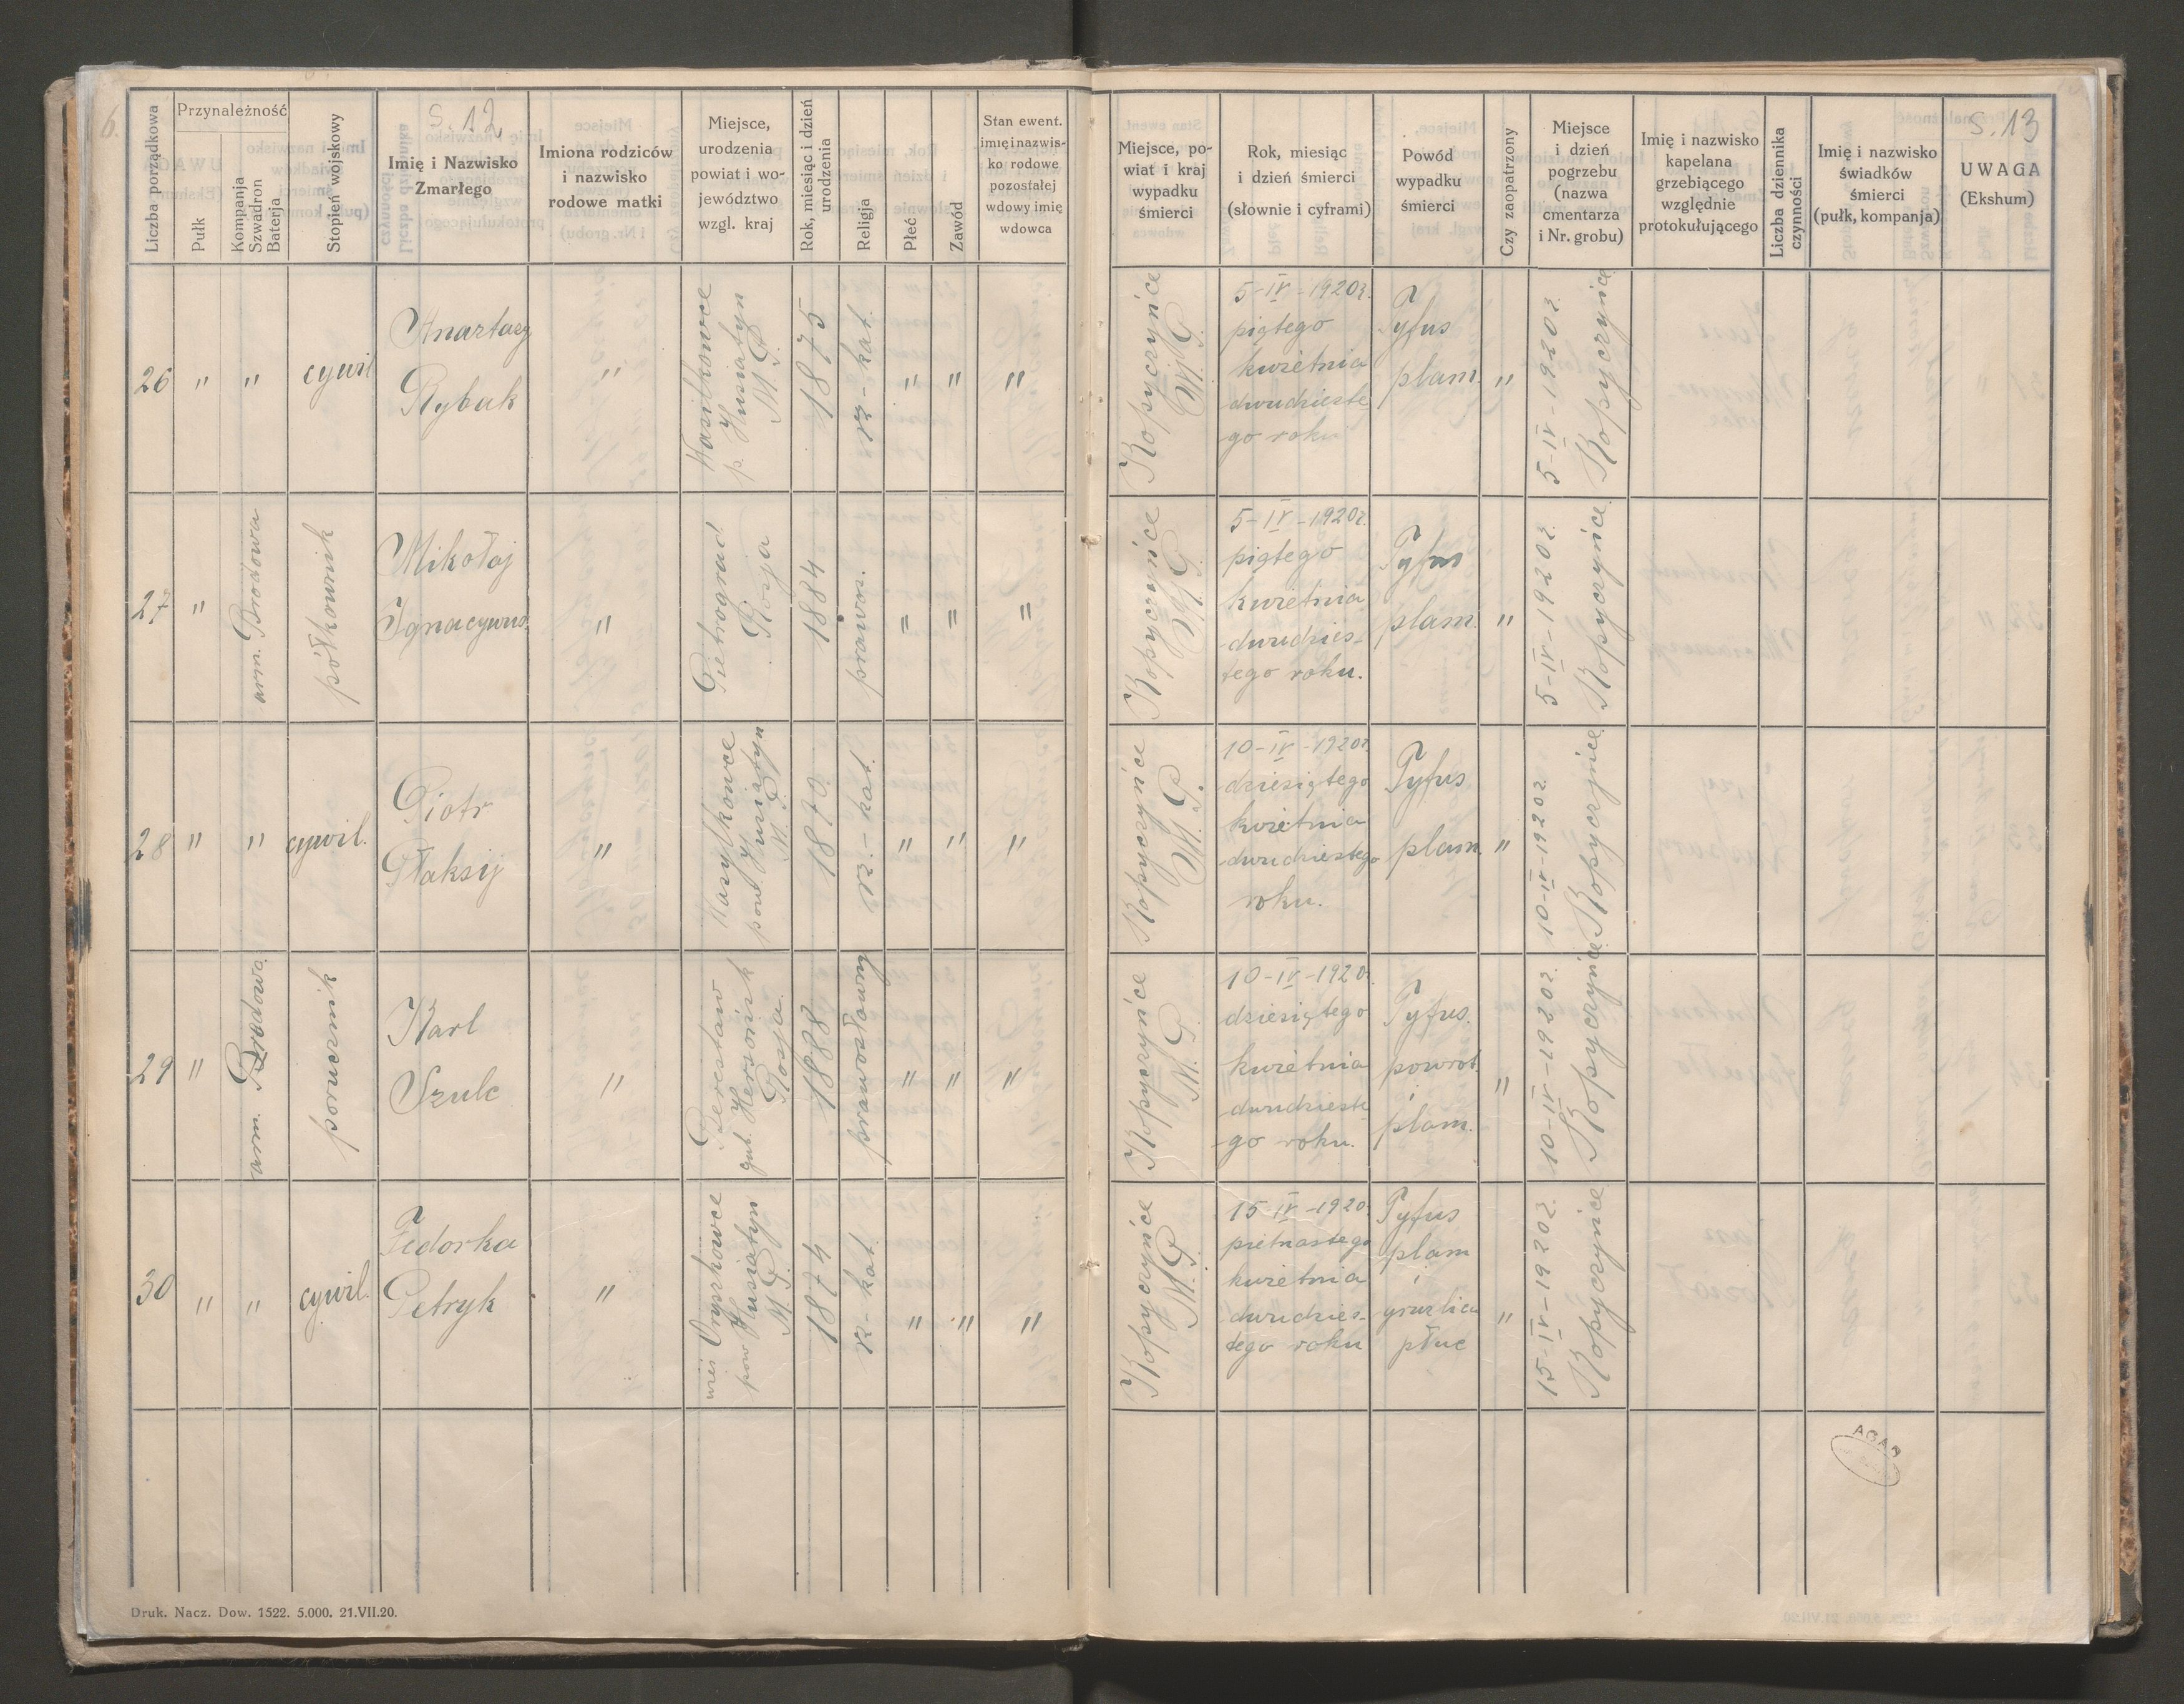 6.
S. 12
Liczba porządkowa
Przynależność
Pułk
Kompanja
Szwadron
Baterja
Stopień wojskowy
Imię i Nazwisko
Zmarłego
Imiona rodziców
i nazwisko
rodowe matki
Miejsce,
urodzenia
powiat i wo-
jewództwo
wzgl. kraj
Rok, miesiąc i dzień
urodzenia
Religja
Płeć
Zawód
Stan ewent.
imię i nazwis-
ko rodowe
pozostałej
wdowy imię
wdowca
S. 13
Miejsce, po-
wiat i kraj
wypadku
śmierci
Rok, miesiąc
i dzień śmierci
(słownie i cyframi)
Powód
wypadku
śmierci
Czy zaopatrzony
Miejsce
i dzień
pogrzebu
(nazwa
cmentarza
i Nr. grobu)
Imię i nazwisko
kapelana
grzebiącego
względnie
protokułującego
Liczba dziennika
czynności
Imię i nazwisko
świadków
śmierci
(pułk, kompanja)
UWAGA
(Ekshum)
26
"
"
cywil
Rybak
"
Wasilkowce
p. Husiatyn
M. P.
1875
rz-kat.
"
"
"
Kopyczyńce
M. P.
5-IV-1920r.
piątego
kwietnia
dwudzieste
go roku
Tyfus
plam.
"
5-IV-1920r.
Kopyczyńce
27
"
arm. Brodowa
półkownik
Mikołaj
"
Pietrograd
Rosja
1884
prawos.
"
"
"
Kopyczyńce
M. P.
5-IV-1920r.
piątego
kwietnia
dwudzies-
tego roku.
Tyfus
plam.
"
5-IV-1920r.
Kopyczyńce
28
"
"
cywil.
Piotr
Płaksij
"
Wasylkowce
pow Husiatyn
M. P.
1870
rz.-kat.
"
"
"
Kopyczyńce
M. P.
10-IV-1920r.
dziesiątego
kwietnia
dwudziestego
roku.
Tyfus
plam.
"
10-IV-1920r.
Kopyczyńce
29
"
arm. Bredowa
porucznik
Karl
Szulc
"
gub. Hersońsk
Rosja.
1888
prawosławny
"
"
"
Kopyczyńce
M. P.
10-IV-1920.
dziesiątego
kwietnia
dwudzieste
go roku.
Tyfus.
powrot.
i
plam.
"
10-IV-1920r.
Kopyczyńce
30
"
"
cywil.
Fedorka
Petryk
"
wieś Oryszkowce
pow Husiatyn
M. P.
1874
rz-kat.
"
"
"
Kopyczyńce
M. P.
15-IV-1920.
pietnastego
kwietnia
dwudzies-
tego roku
Tyfus
plam
i
gruzlica
płuc
"
15-IV-1920r.
Kopyczyńce
AGAD
Druk. Nacz. Dow. 1522. 5.000. 21.VII.20.